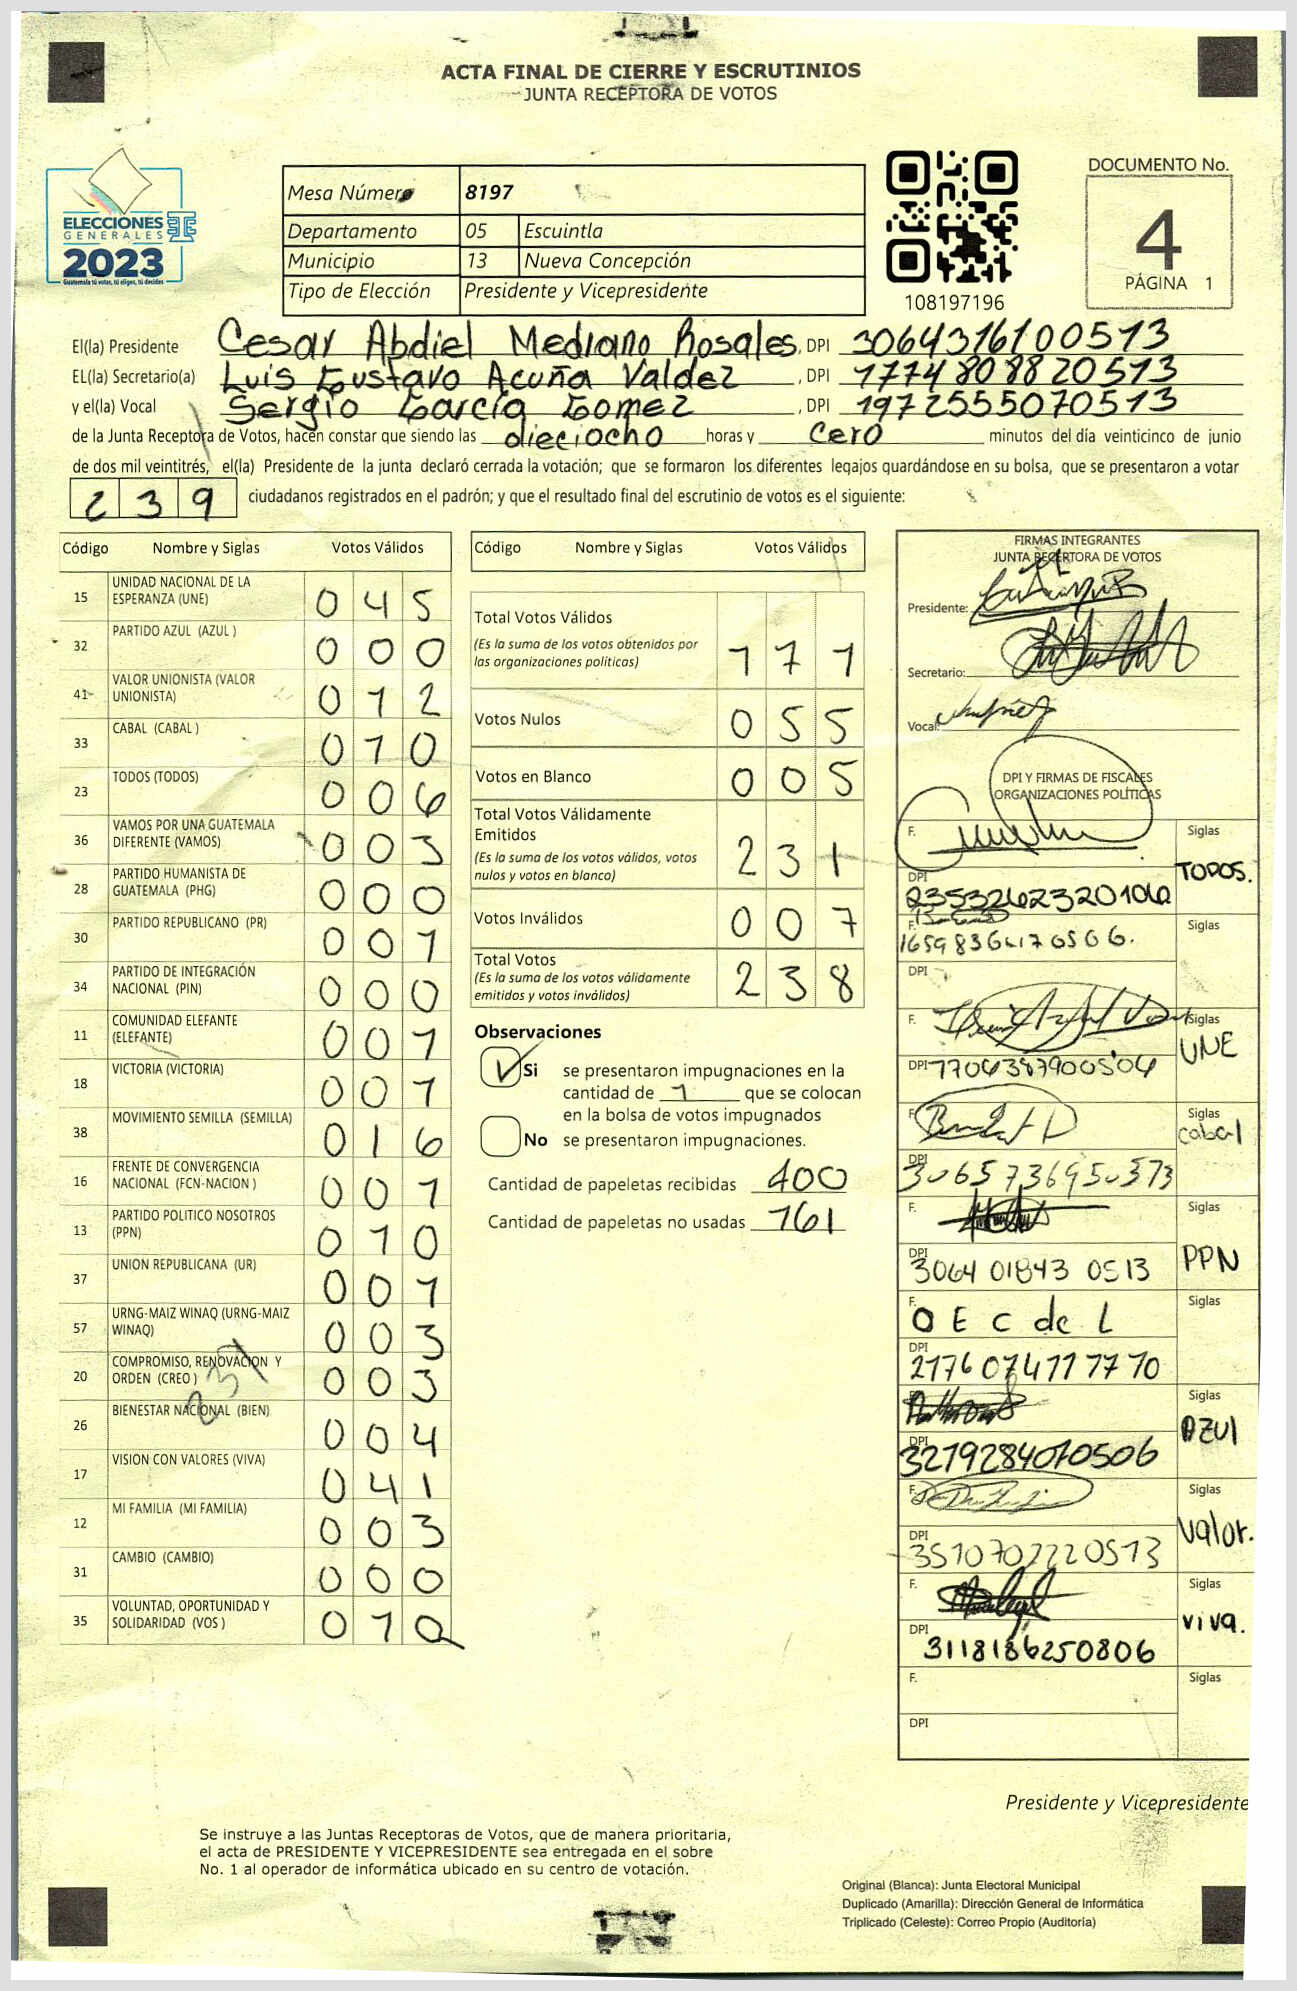 ACTA FINAL DE CIERRE Y ESCRUTINIOS
JUNTA RECEPTORA DE VOTOS
ELECCIONES
GENERALES
2023
Guatemala tú votas, tú eliges, tú decides
Mesa Número 8197
Departamento 05 Escuintla
Municipio 13 Nueva Concepción
Tipo de Elección Presidente y Vicepresidente
108197196
DOCUMENTO No.
4
PÁGINA 1
El(la) Presidente Cesar Abdiel Mediano Rosales, DPI 3064316100513
EL(la) Secretario(a) Luis Gustavo Acuña Valdez, DPI 1774808820513
y el(la) Vocal Sergio García Gomez, DPI 1972555070513
de la Junta Receptora de Votos, hacen constar que siendo las dieciocho horas y cero minutos del día veinticinco de junio
de dos mil veintitrés, el(la) Presidente de la junta declaró cerrada la votación; que se formaron los diferentes legajos guardándose en su bolsa, que se presentaron a votar
239 ciudadanos registrados en el padrón; y que el resultado final del escrutinio de votos es el siguiente:
Código Nombre y Siglas Votos Válidos
15 UNIDAD NACIONAL DE LA ESPERANZA (UNE) 045
32 PARTIDO AZUL (AZUL ) 000
41 VALOR UNIONISTA (VALOR UNIONISTA) 012
33 CABAL (CABAL ) 010
23 TODOS (TODOS) 006
36 VAMOS POR UNA GUATEMALA DIFERENTE (VAMOS) 003
28 PARTIDO HUMANISTA DE GUATEMALA (PHG) 000
30 PARTIDO REPUBLICANO (PR) 001
34 PARTIDO DE INTEGRACIÓN NACIONAL (PIN) 000
11 COMUNIDAD ELEFANTE (ELEFANTE) 001
18 VICTORIA (VICTORIA) 001
38 MOVIMIENTO SEMILLA (SEMILLA) 016
16 FRENTE DE CONVERGENCIA NACIONAL (FCN-NACION ) 001
13 PARTIDO POLITICO NOSOTROS (PPN) 010
37 UNION REPUBLICANA (UR) 001
57 URNG-MAIZ WINAQ (URNG-MAIZ WINAQ) 003
20 COMPROMISO, RENOVACION Y ORDEN (CREO ) 003
231
26 BIENESTAR NACIONAL (BIEN) 004
17 VISION CON VALORES (VIVA) 041
12 MI FAMILIA (MI FAMILIA) 003
31 CAMBIO (CAMBIO) 000
35 VOLUNTAD, OPORTUNIDAD Y SOLIDARIDAD (VOS ) 010
Código Nombre y Siglas Votos Válidos
Total Votos Válidos
(Es la suma de los votos obtenidos por
las organizaciones políticas) 171
Votos Nulos 055
Votos en Blanco 005
Total Votos Válidamente
Emitidos
(Es la suma de los votos válidos, votos
nulos y votos en blanco) 231
Votos Inválidos 007
Total Votos
(Es la suma de los votos válidamente
emitidos y votos inválidos) 238
Observaciones
Si se presentaron impugnaciones en la
cantidad de 1 que se colocan
en la bolsa de votos impugnados
No se presentaron impugnaciones.
Cantidad de papeletas recibidas 400
Cantidad de papeletas no usadas 161
FIRMAS INTEGRANTES
JUNTA RECEPTORA DE VOTOS
Presidente:
Secretario:
Vocal:
DPI Y FIRMAS DE FISCALES
ORGANIZACIONES POLÍTICAS
F. Siglas
DPI 2353262320106 TODOS.
F. Siglas
DPI
F. Siglas
DPI 1706387900506 UNE
F. Siglas
DPI 3065736950513 cabal
F. Siglas
DPI 3064 01843 0513 PPN
F. O E C de L Siglas
DPI 2176074117770
F. Siglas
DPI 3219284070506 AZUL
F. Siglas
DPI 3510702220513 Valor.
F. Siglas
DPI 3118186250806 viva.
F. Siglas
DPI
Presidente y Vicepresidente
Se instruye a las Juntas Receptoras de Votos, que de manera prioritaria,
el acta de PRESIDENTE Y VICEPRESIDENTE sea entregada en el sobre
No. 1 al operador de informática ubicado en su centro de votación.
Original (Blanca): Junta Electoral Municipal
Duplicado (Amarilla): Dirección General de Informática
Triplicado (Celeste): Correo Propio (Auditoría)